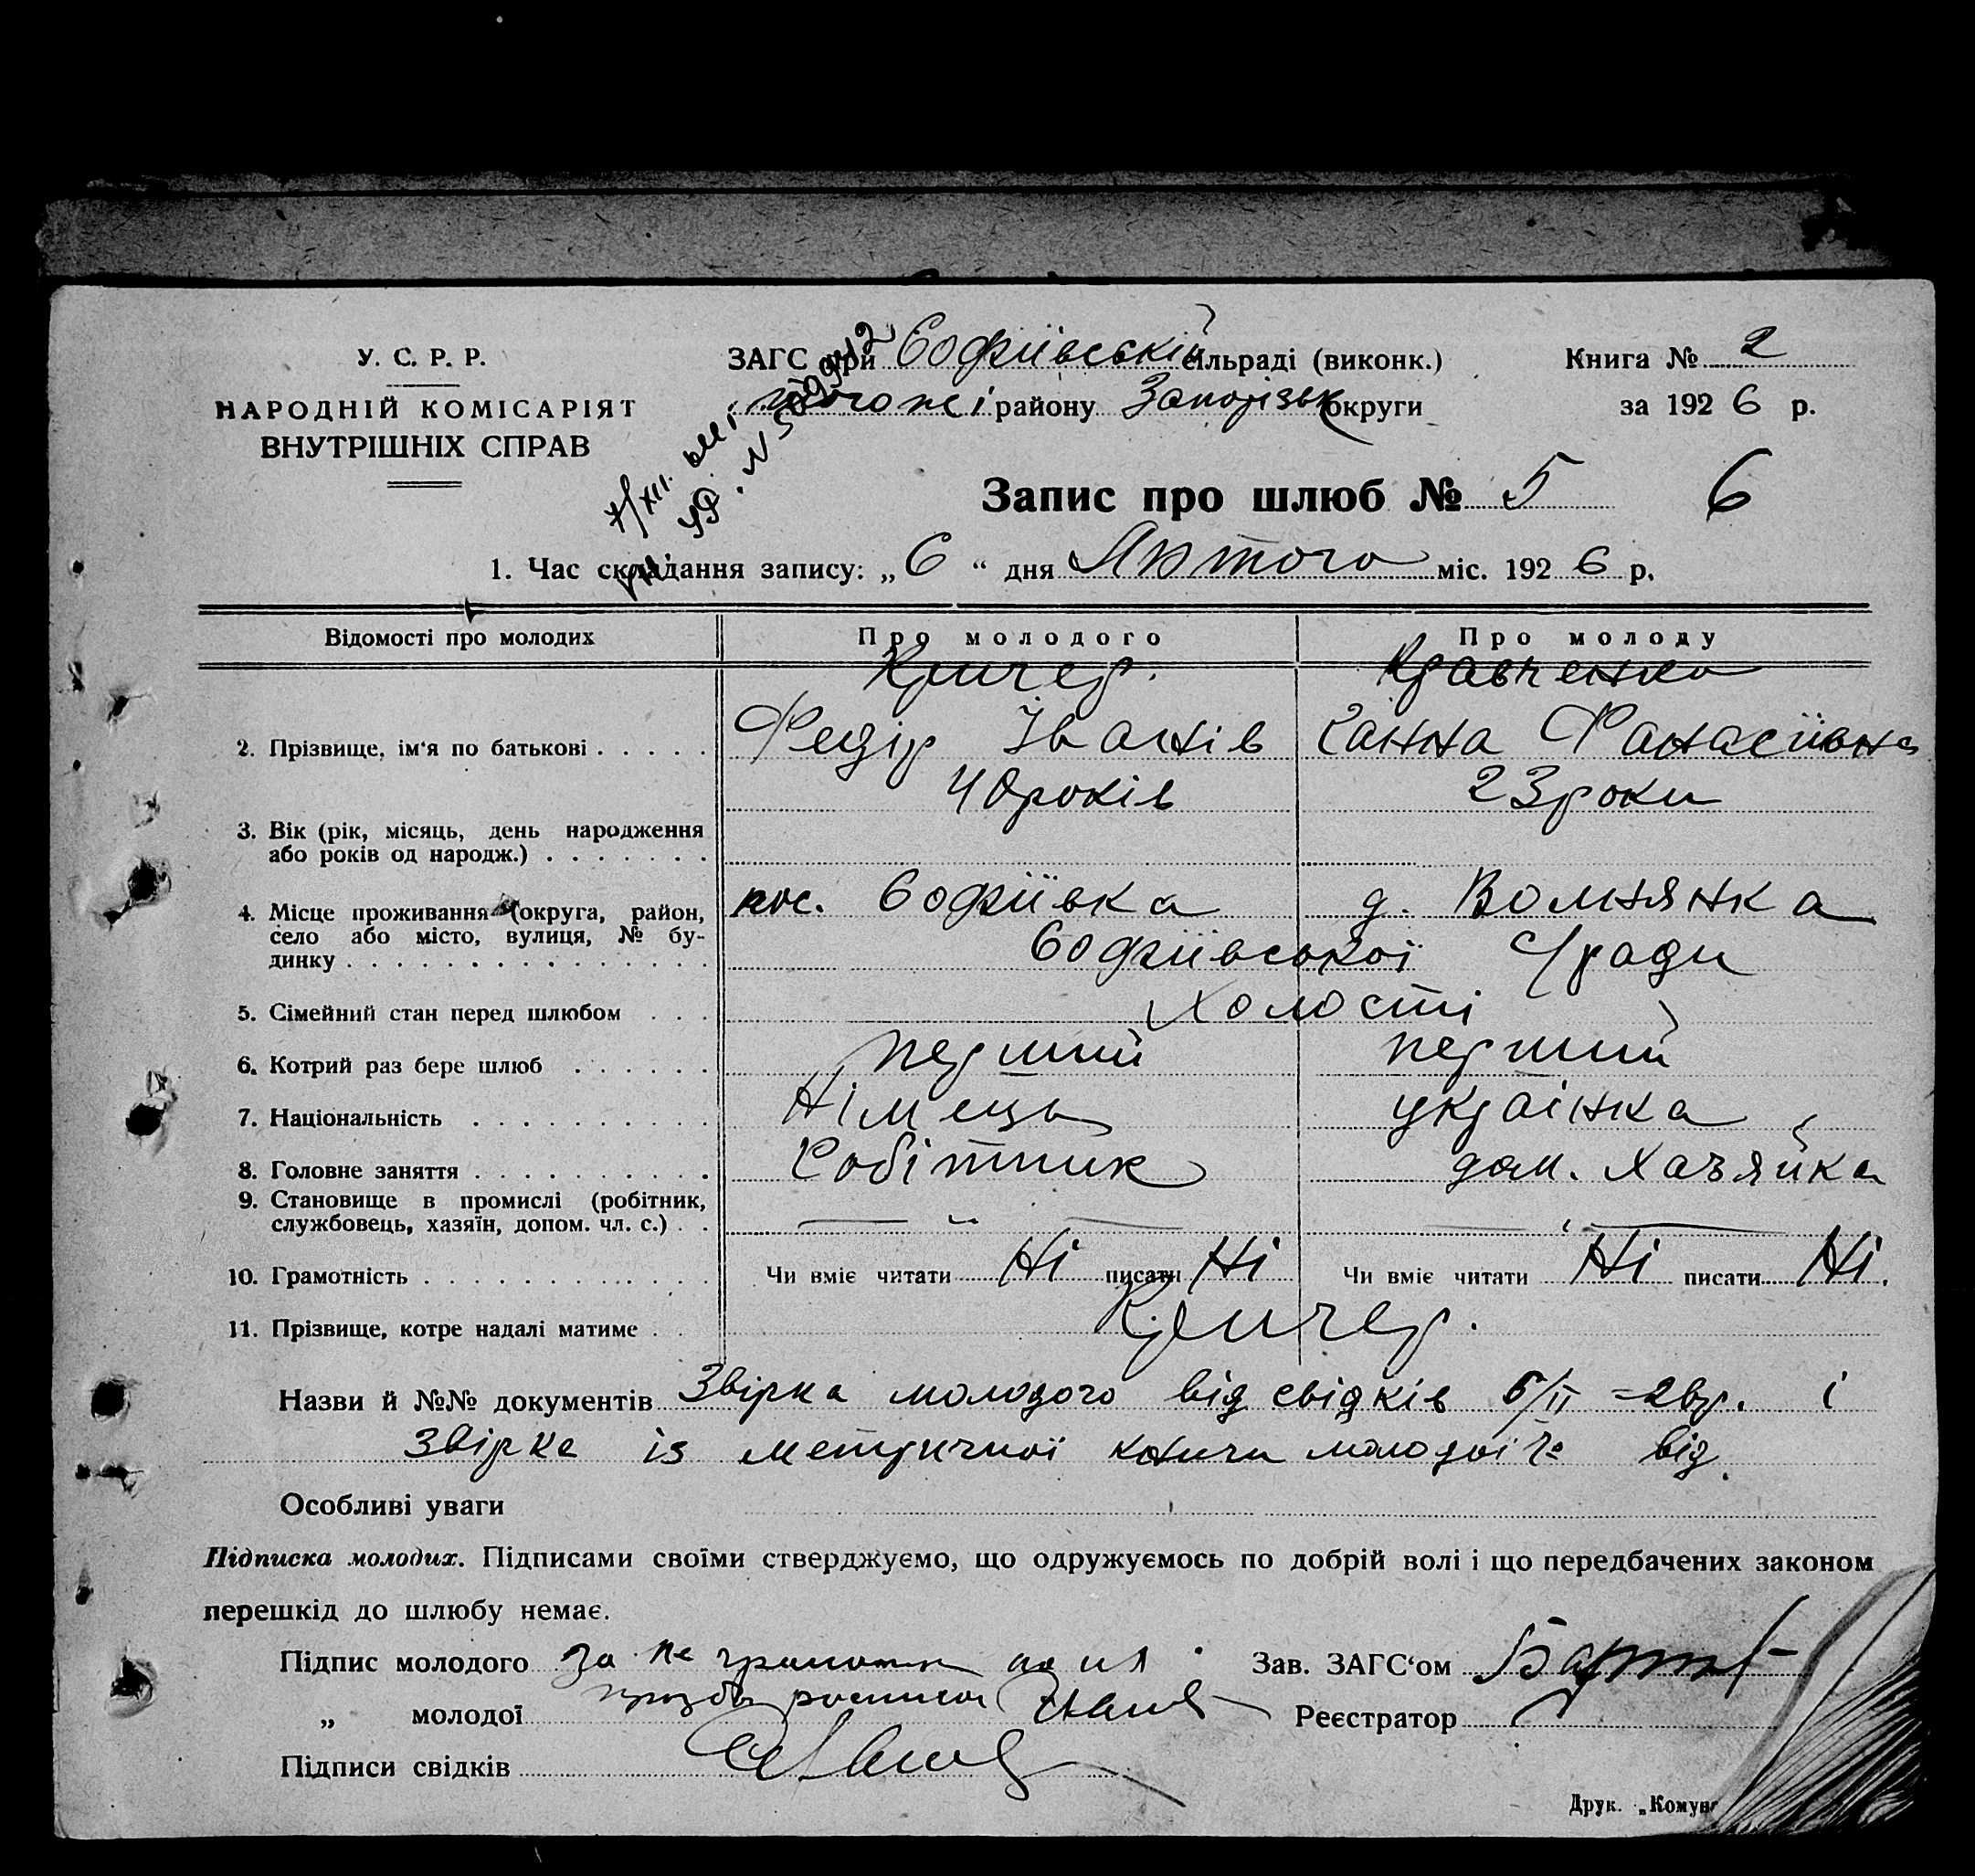 У. С. Р. Р.
НАРОДНІЙ КОМІСАРІЯТ
ВНУТРІШНІХ СПРАВ
ЗАГС при Софіївській сільраді (виконк.)
тогожі району Запорізьк округи
Книга № 2
за 1926 р.
Запис про шлюб № 5 6
1. Час складання запису: „6“ дня Лютого міс. 1926 р.
Відомості про молодих Про молодого Про молоду
Кравченко
2. Прізвище, ім'я по батькові Федір Іванів Ганна Фанасіївна
40 років 23 роки
3. Вік (рік, місяць, день народження
або років од народж.)
4. Місце проживання (округа, район, пос. Софіївка д. Вольнянка
село або місто, вулиця, № бу- Софіївської с/ради
динку
5. Сімейний стан перед шлюбом Холості
6. Котрий раз бере шлюб перший перший
7. Національність Німець українка
8. Головне заняття Робітник дом. Хазяйка
9. Становище в промислі (робітник,
службовець, хазяїн, допом. чл. с.)
10. Грамотність Чи вміє читати Ні писати Ні Чи вміє читати Ні писати Ні.
11. Прізвище, котре надалі матиме
Назви й №№ документів Звірка молодого від свідків 6/II і
Звірка із метричної книги молодої від
Особливі уваги
Підписка молодих. Підписами своїми стверджуємо, що одружуємось по добрій волі і що передбачених законом
перешкід до шлюбу немає.
Підпис молодого за не грамотн Зав. ЗАГС'ом
„ молодої Реєстратор
Підписи свідків
Друк. „Комун